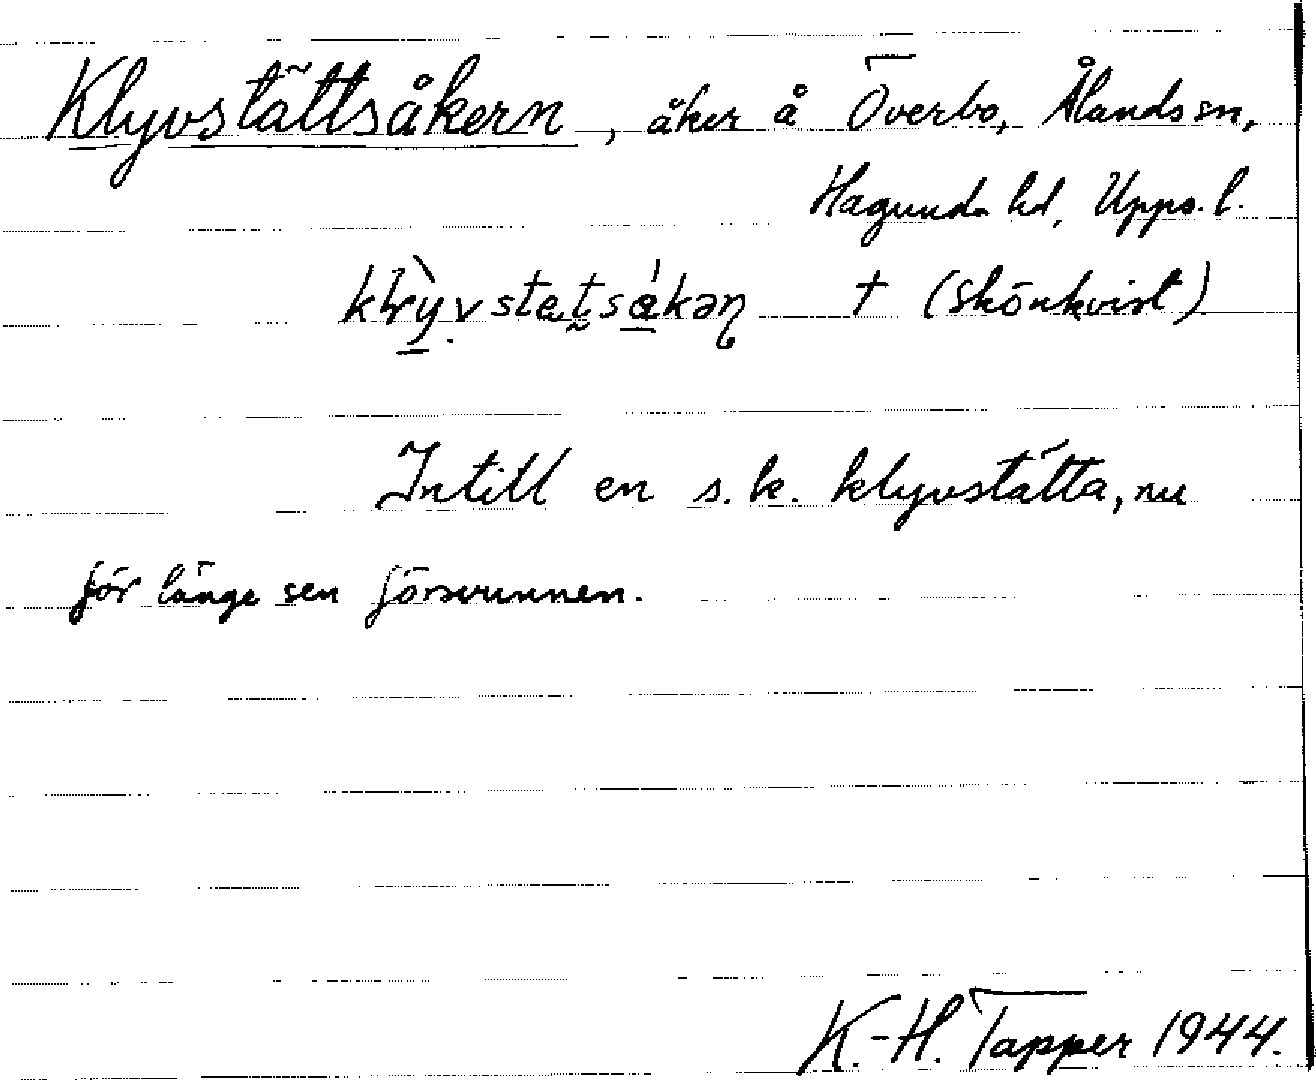 Klyvstättsåkern, åker å Överbo, Ålands sn,
Hagunda hd, Upps. l.
† (Skönkvist)
Intill en s.k. klyvstätta, nu
för länge sen försvunnen.
K.-H. Tapper 1944.